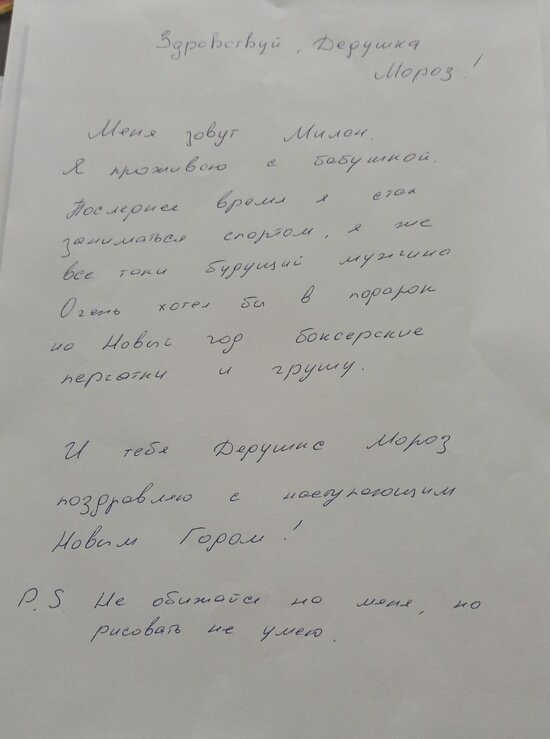 Здравствуй, Дедушка
Мороз!
Меня зовут Милан.
Я проживаю с бабушкой.
Последнее время я стал
заниматься спортом, я же
все таки будущий мужчина.
Очень хотел бы в подарок
на Новый год боксерские
перчатки и грушу.
И тебя Дедушка Мороз
поздравляю с наступающим
Новым Годом!
P.S. Не обижайся на меня, но
рисовать не умею.